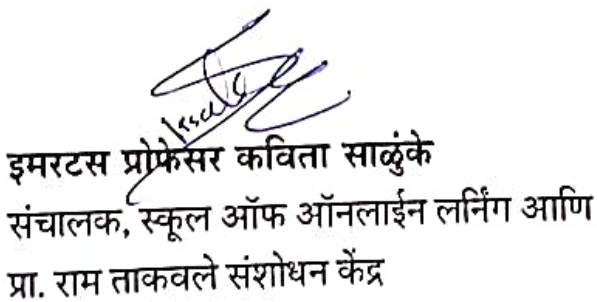 इमरटस प्रोफेसर कविता साळुंके
संचालक, स्कूल ऑफ ऑनलाईन लर्निंग आणि
प्रा. राम ताकवले संशोधन केंद्र